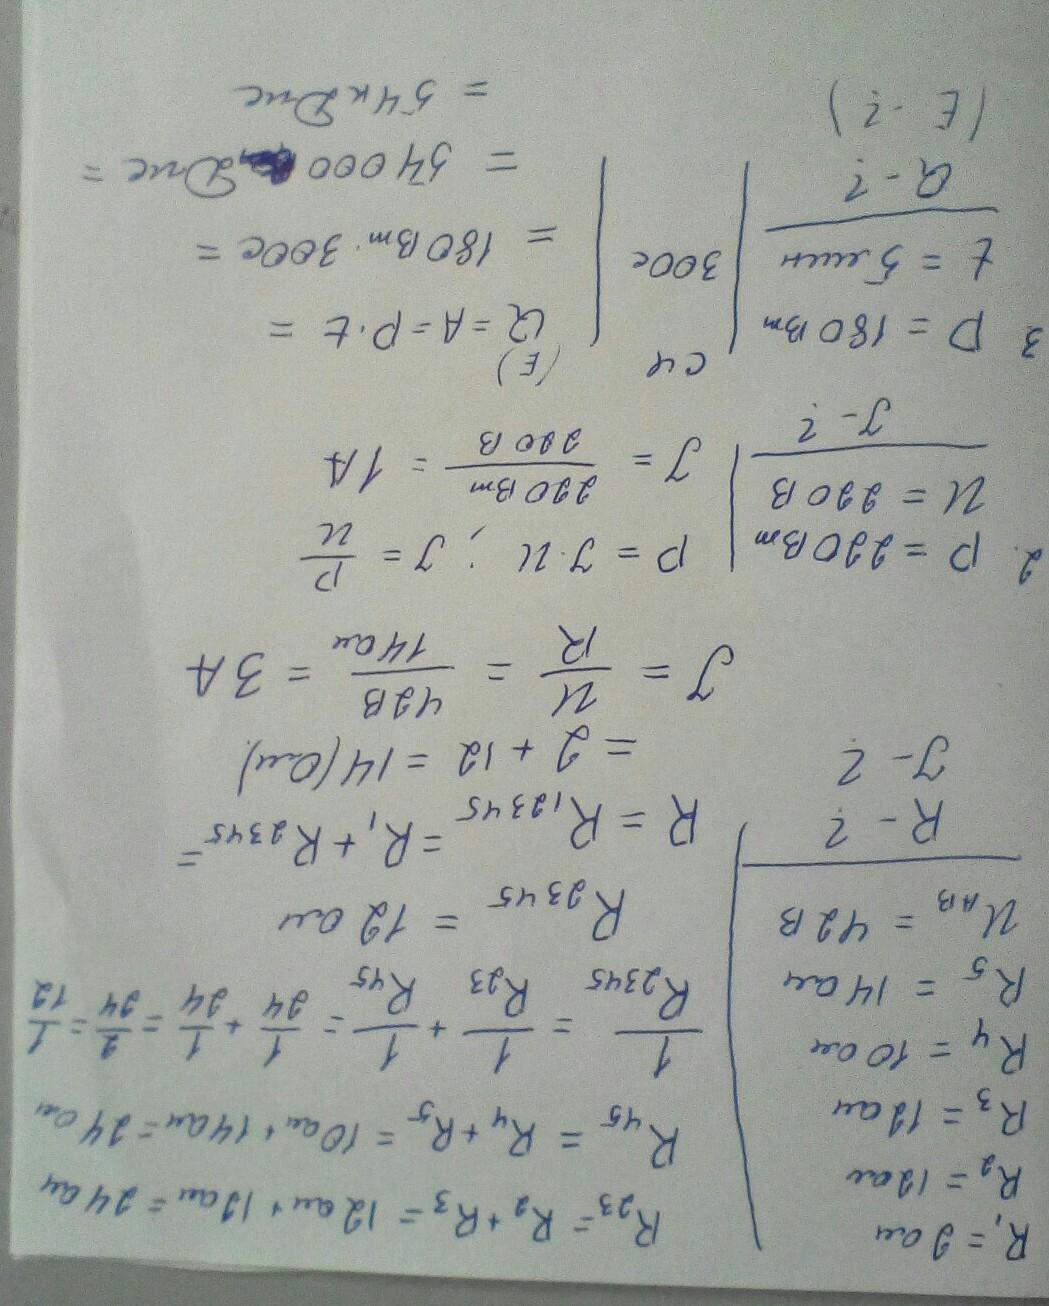 R₁ = 2 ом
R₂ = 12 ом
R₃ = 12 ом
R₄ = 10 ом
R₅ = 14 ом
U_AB = 42 В
R - ?
J - ?
R₂₃ = R₂ + R₃ = 12 ом + 12 ом = 24 ом
R₄₅ = R₄ + R₅ = 10 ом + 14 ом = 24 ом
1/R₂₃₄₅ = 1/R₂₃ + 1/R₄₅ = 1/24 + 1/24 = 2/24 = 1/12
R₂₃₄₅ = 12 ом
R = R₁₂₃₄₅ = R₁ + R₂₃₄₅ =
= 2 + 12 = 14 (Ом)
J = U/R = 42 В/14 ом = 3 А
2. P = 220 Вт
U = 220 В
J - ?
P = J · U ; J = P/U
J = 220 Вт/220 В = 1 А
3. P = 180 Вт
t = 5 мин
Q - ?
(E - ?)
СИ
300 с
(E)
Q = A = P · t =
= 180 Вт · 300 с =
= 54 000 Дж =
= 54 к Дж